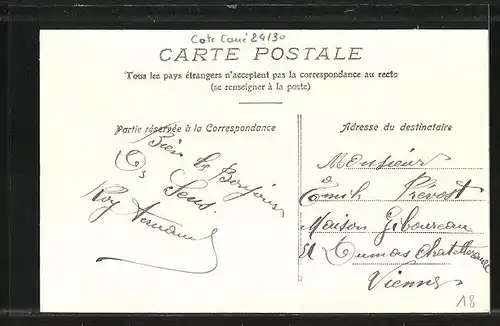 Cote Coué 24/30
CARTE POSTALE
Tous les pays étrangers n'acceptent pas la correspondance au recto
(se renseigner à la poste)
Partie réservée à la Correspondance
Adresse du destinataire
Bien le Bonjour
Sens
Roy
Monsieur
Emile Prévost
Maison Giboureau
et Dumas Chatellerault
Vienne
18